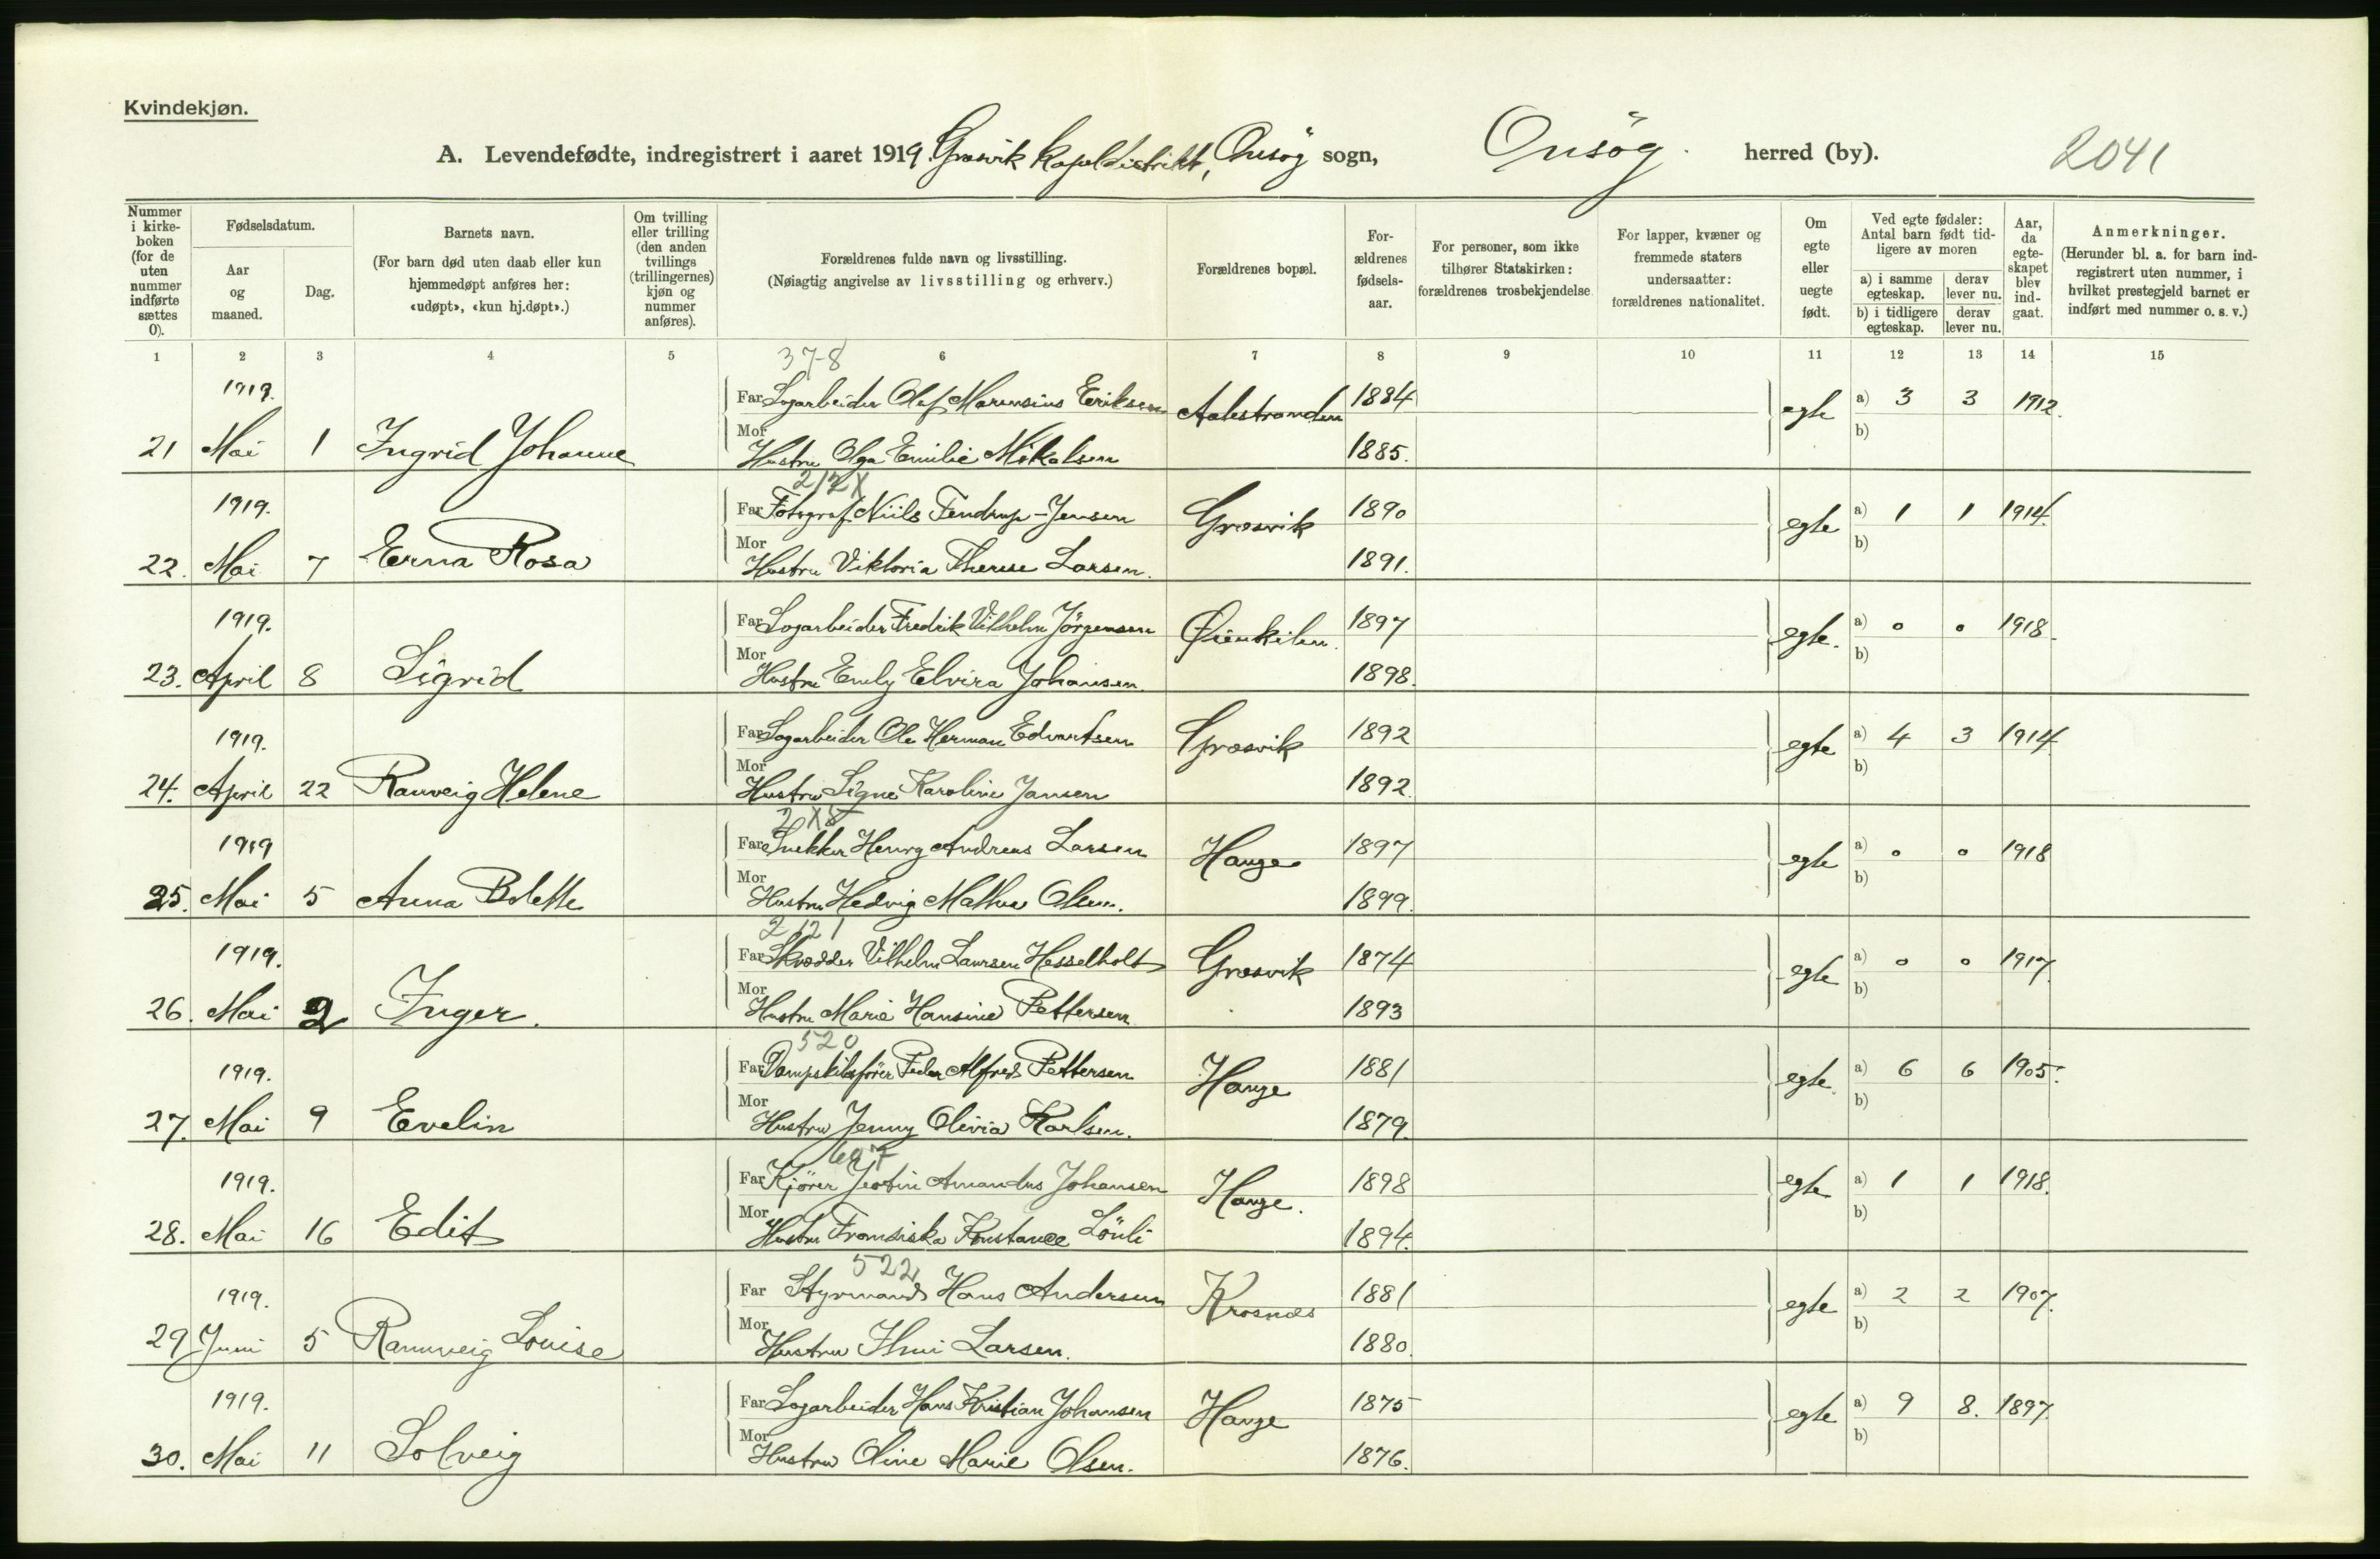 Kvindekjøn.
A. Levendefødte, indregistrert i aaret 1919. Græsvik kapeldistrikt, Onsøy sogn, Onsøy herred (by). 2041
Nummer i kirkeboken (for de uten nummer indførte sættes 0).
Fødselsdatum.
Aar og maaned.
Dag.
Barnets navn.
(For barn død uten daab eller kun hjemmedøpt anføres her: «udøpt», «kun hj.døpt».)
Om tvilling eller trilling (den anden tvillings (trillingernes) kjøn og nummer anføres).
Forældrenes fulde navn og livsstilling.
(Nøiagtig angivelse av livsstilling og erhverv.)
Forældrenes bopæl.
Forældrenes fødselsaar.
For personer, som ikke tilhører Statskirken: forældrenes trosbekjendelse
For lapper, kvæner og fremmede staters undersaatter: forældrenes nationalitet.
Om egte eller uegte født.
Ved egte fødsler: Antal barn født tidligere av moren
a) i samme egteskap. derav lever nu.
b) i tidligere egteskap. derav lever nu.
Aar, da egteskapet blev indgaat.
Anmerkninger.
(Herunder bl. a. for barn indregistrert uten nummer, i hvilket prestegjeld barnet er indført med nummer o. s. v.)
1 2 3 4 5 6 7 8 9 10 11 12 13 14 15
378
1919. Far Sagarbeider Olaf Marensius Eriksen Aalestranden 1884 egte a) 3 3 1912.
21 Mai 1 Ingrid Johanne Mor Hustru Olga Emilie Mikalsen 1885. b)
212X
1919. Far Fotograf Niils Fendrup-Jensen Græsvik 1890 egte a) 1 1 1914.
22. Mai 7 Erna Rosa Mor Hustru Viktoria Therese Larsen. 1891. b)
1919. Far Sagarbeider Fredrik Vilhelm Jörgensen Øienkilen. 1897 egte. a) 0 0 1918.
23. April 8 Sigrid Mor Hustru Emely Elvira Johansen. 1898. b)
1919. Far Sagarbeider Ole Herman Edvartsen Græsvik 1892 egte a) 4 3 1914
24. April 22 Ranveig Helene Mor Hustru Signe Karoline Jansen 1892. b)
1919 Far Snekker Henry Andreas Larsen Hauge 1897 egte a) 0 0 1918
25. Mai 5 Anna Bolette Mor Hustru Hedvig Mathea Olsen. 1899. b)
2121
1919. Far Skrædder Vilhelm Laursen Hesselholt Græsvik 1874 egte a) 0 0 1917
26. Mai 2 Inger. Mor Hustru Marie Hansine Pettersen 1893 b)
520
1919. Far Dampskibsfører Peder Alfred Pettersen Hauge 1881 egte. a) 6 6 1905.
27. Mai 9 Evelin Mor Hustru Jenny Olivia Karlsen. 1879. b)
697
1919. Far Kjörer Jostin Amandus Johansen Hauge. 1898 egte a) 1 1 1918.
28. Mai 16 Edit Mor Hustru Fransiska Konstance Lönli 1894. b)
522
1919. Far Styrmand Hans Andersen Krosnæs 1881 egte a) 2 2 1907.
29 Juni 5 Rannveig Louise Mor Hustru Larsen. 1880. b)
1919. Far Sagarbeider Hans Kristian Johansen Hauge 1875 egte a) 9 8. 1897.
30. Mai 11 Solveig Mor Hustru Oline Marie Olsen. 1876. b)